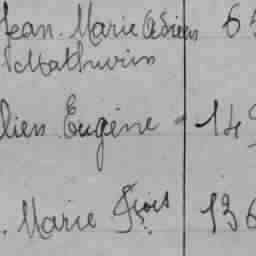 Jean Marie Adrien 65
Mathurin
lien Eugène 149
. Marie Fçois 136